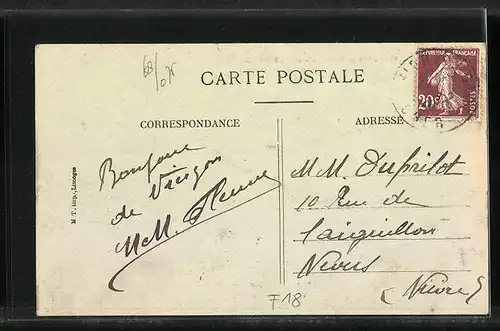 68/05
CARTE POSTALE
RÉPUBLIQUE FRANÇAISE
20c
POSTES
CORRESPONDANCE
ADRESSE
M. T. imp., Limoges
Bonjour
de Vierzon
MM.
MM. Duprilot
10 Rue de
l'aiguillon
Nevers
(Nièvre)
F18